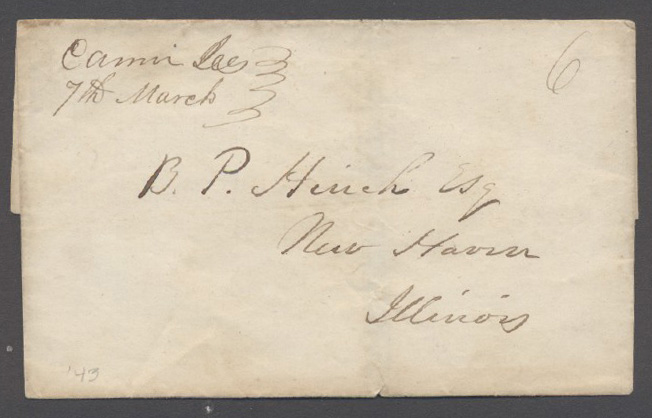 Carmi Ills
7th March
6
B. P. Hinch Esq
New Haven
Illinois
'43